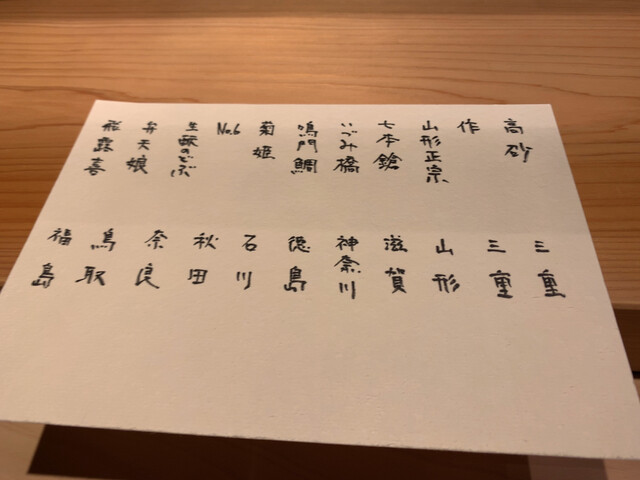 高砂 三重
作 三重
山形正宗 山形
七本鎗 滋賀
いづみ橋 神奈川
鳴門鯛 徳島
菊姫 石川
No.6 秋田
生酛のどぶ 奈良
弁天娘 鳥取
飛露喜 福島